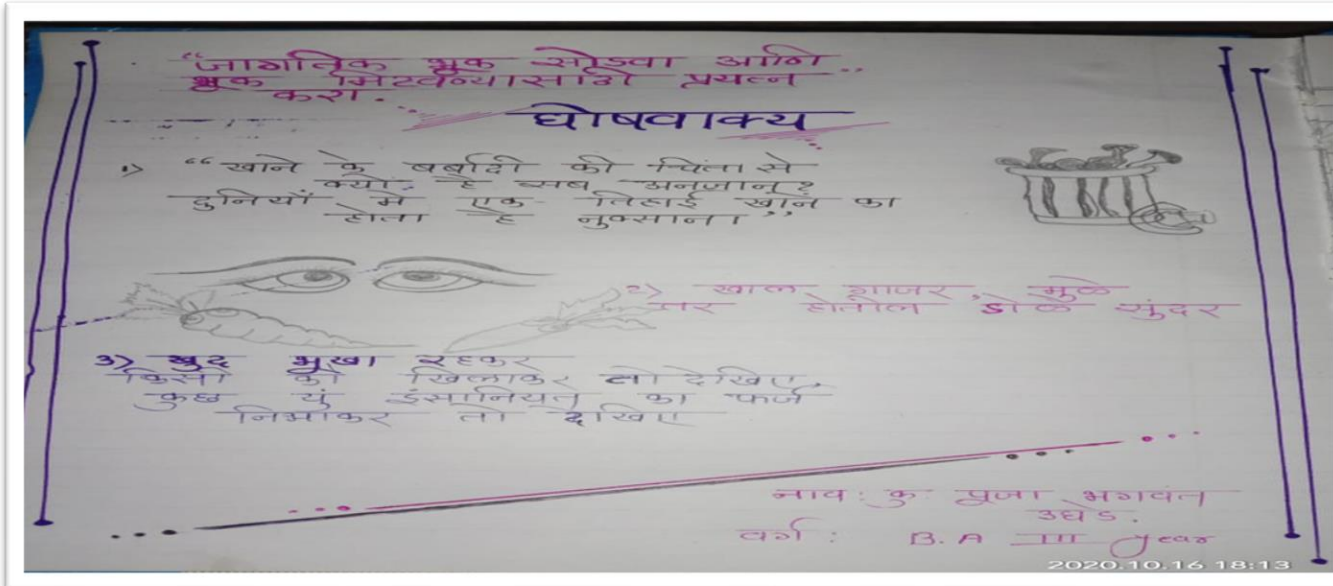 “जागतिक भूक सोडवा आणि
भूक मिटवण्यासाठी प्रयत्न ”
करा.
घोषवाक्य
1) “ खाने के बर्बादी की चिंता से
क्यों है सब अनजान?
दुनियाँ मे एक तिहाई खाने का
होता है नुकसान। ”
2) खाल गाजर, मुळे
तर होतील डोळे सुंदर
3) खुद भूखा रहकर
किसी को खिलाकर तो देखिए,
कुछ यूं इंसानियत का फर्ज
निभाकर तो देखिए
नाव : कु पूजा भगवंत
उघडे.
वर्ग : B.A III year
2020.10.16 18:13